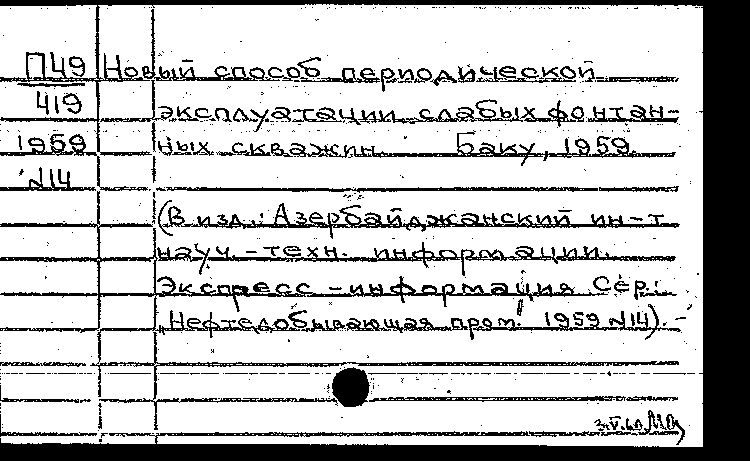 П49 Новый способ периодической
419 эксплуатации слабых фонтан-
1959 ных скважин. Баку, 1959.
№14
(В изд.: Азербайджанский ин-т
науч.-техн. информации.
Экспресс-информация Сер.:
„Нефтедобывающая пром." 1959 №14). -
3.V.60